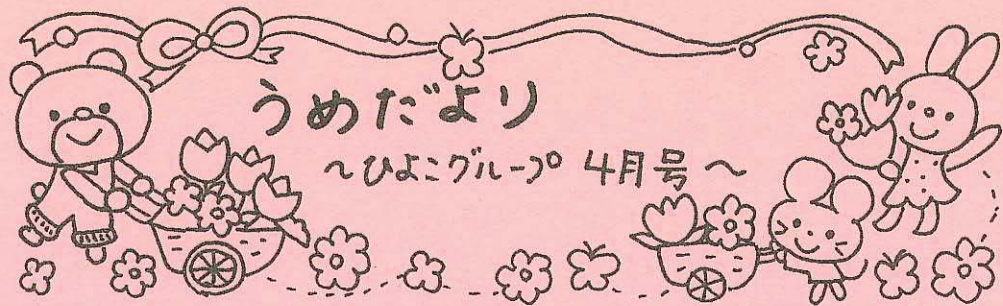 うめだより
～ひよこグループ 4月号～